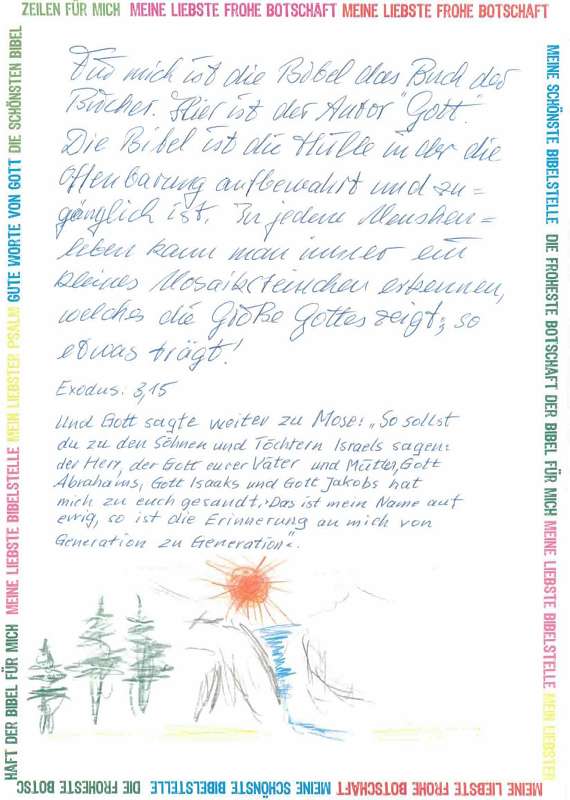 ZEILEN FÜR MICH MEINE LIEBSTE FROHE BOTSCHAFT MEINE LIEBSTE FROHE BOTSCHAFT
Für mich ist die Bibel das Buch der
Bücher. Hier ist der Autor "Gott".
Die Bibel ist die Hülle in der die
Offenbarung aufbewahrt und zu=
gänglich ist. In jedem Menschen=
leben kann man immer ein
kleines Mosaiksteinchen erkennen,
welches die Größe Gottes zeigt; so
etwas trägt!
Exodus: 3,15
Und Gott sagte weiter zu Mose: „So sollst
du zu den Söhnen und Töchtern Israels sagen:
der Herr, der Gott eurer Väter und Mütter, Gott
Abrahams, Gott Isaaks und Gott Jakobs hat
mich zu euch gesandt. Das ist mein Name auf
ewig, so ist die Erinnerung an mich von
Generation zu Generation“.
MEINE SCHÖNSTE BIBELSTELLE DIE FROHESTE BOTSCHAFT DER BIBEL FÜR MICH MEINE LIEBSTE BIBELSTELLE MEIN LIEBSTER
MEINE LIEBSTE FROHE BOTSCHAFT MEINE SCHÖNSTE BIBELSTELLE DIE FROHESTE BOTSC
HAFT DER BIBEL FÜR MICH MEINE LIEBSTE BIBELSTELLE MEIN LIEBSTER PSALM GUTE WORTE VON GOTT DIE SCHÖNSTEN BIBEL